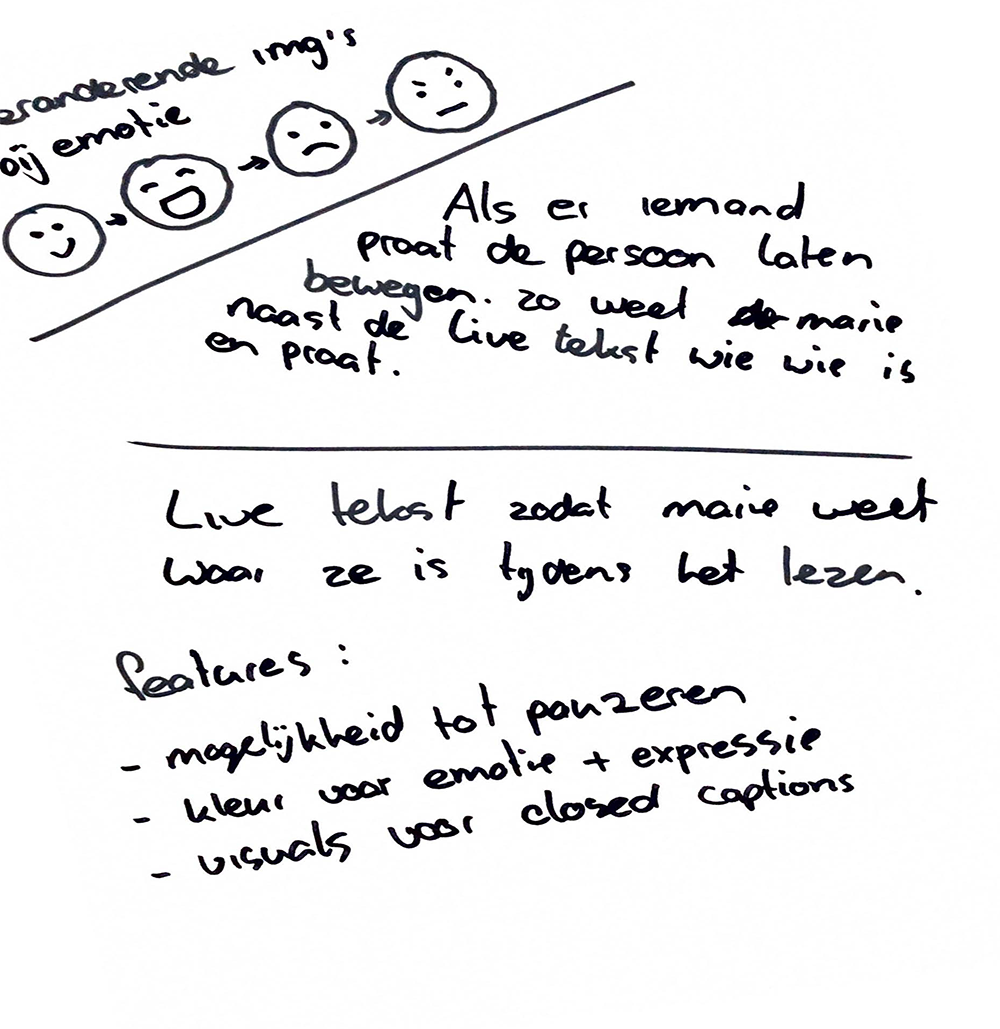 eranderende img's
bij emotie
Als er iemand
praat de persoon laten
bewegen. zo weet marie
naast de live tekst wie wie is
en praat.
Live tekst zodat marie weet
waar ze is tijdens het lezen.
features :
- mogelijkheid tot pauzeren
- kleur voor emotie + expressie
- visuals voor closed captions